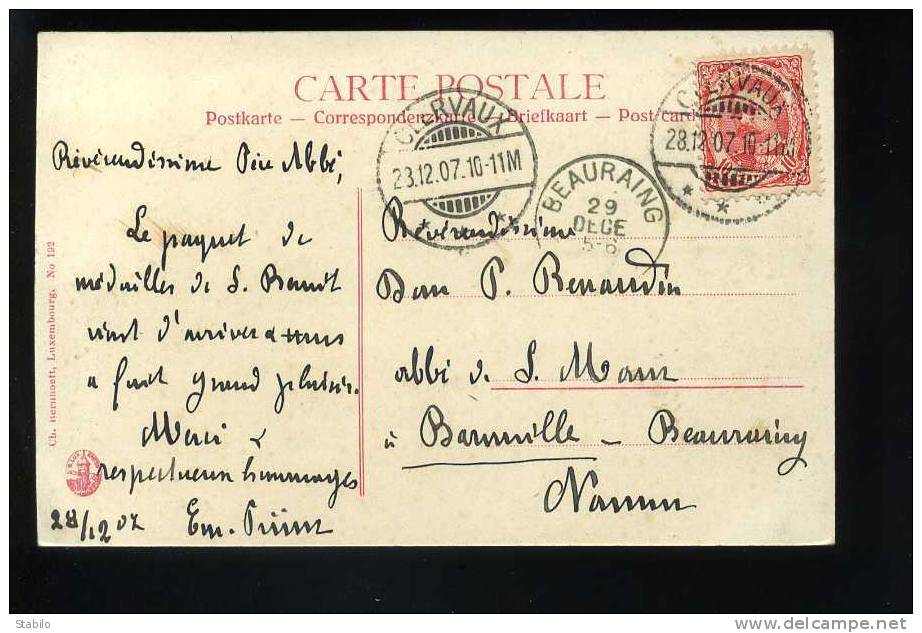 CARTE POSTALE
Postkarte — Correspondenzkarte — Briefkaart — Post card
CLERVAUX
23.12.07.10-11M
CLERVAUX
28.12.07.10-11M
BEAURAING
29
DECE
5-6
Révérendissime Père Abbé,
Le paquet de
médailles de S. Benoit
vient d'arriver & nous
a fait grand plaisir.
Merci &
respectueux hommages
28/12 07 Em.
Révérendissime
Dom P. Renaudin
abbé de S. Maur
à Baronville – Beauraing
Namur
Ch. Bernhoeft, Luxembourg. No 192
Stabilo